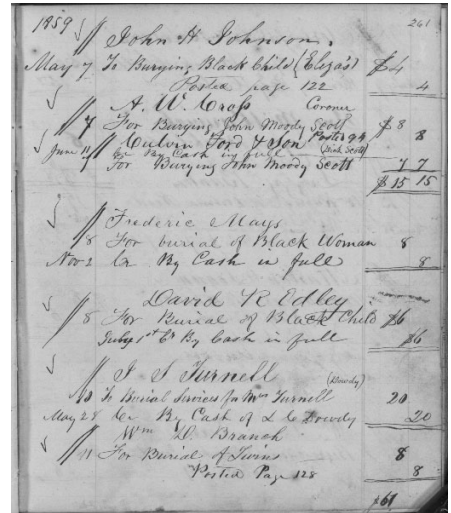 1859 261
John H Johnson.
May 7 To Burying Black Child (Eliza's) $4
Posted page 122 4
A. W. Cross Coroner
7 For Burying John Moody Scott $8
Posted 94 8
Culvin Ford & Son (Rich. Scott)
June 11 Cr By Cash in full
7 For Burying John Moody Scott 7 7
$15 15
Frederic Mays
8 For burial of Black Woman 8
Nov 2 Cr By Cash in full 8
David R Edley
8 For Burial of Black Child $6
July 1st Cr By Cash in full $6
J S Turnell (Dowdy)
10 To Burial Services for Mrs Turnell 20
May 28 Cr By Cash of L C Dowdy 20
Wm D. Branch
11 For Burial of Twins 8
Posted Page 128 8
$61